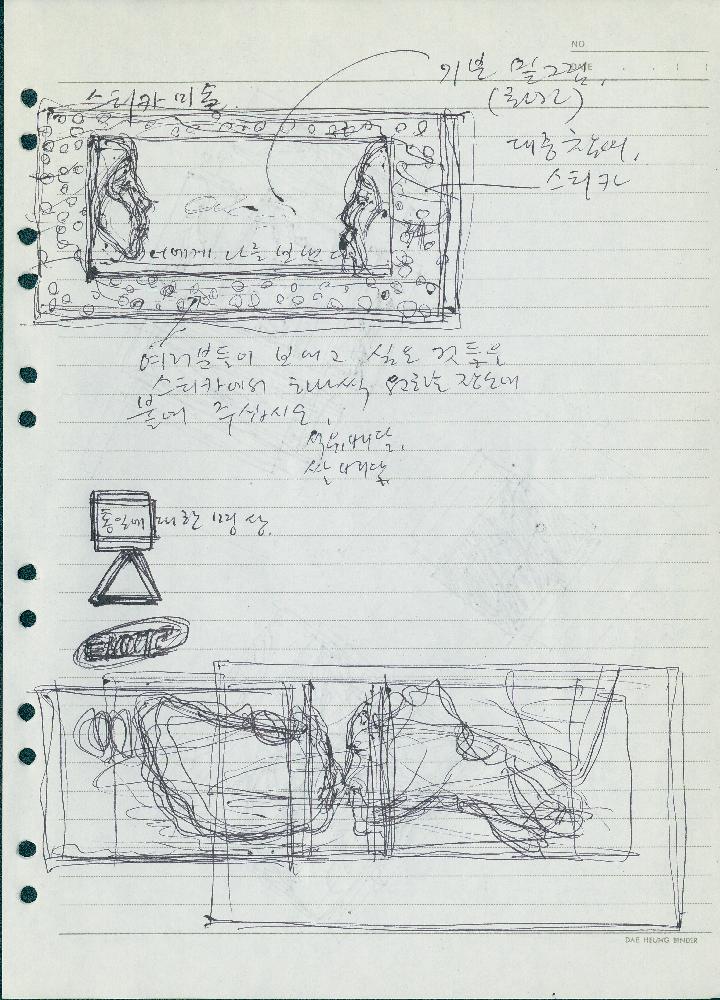 NO
DATE
기본 밑그림.
스티카 미술
대중참여,
스티카
너에게 나를 보낸다
여러분들이 보내고 싶은 것들을
스티카에서 하나씩 원하는 장소에
붙여 주십시오.
석유배달,
쌀배달,
통일에 대한 명상.
EXOTIC
DAE HEUNG BINDER